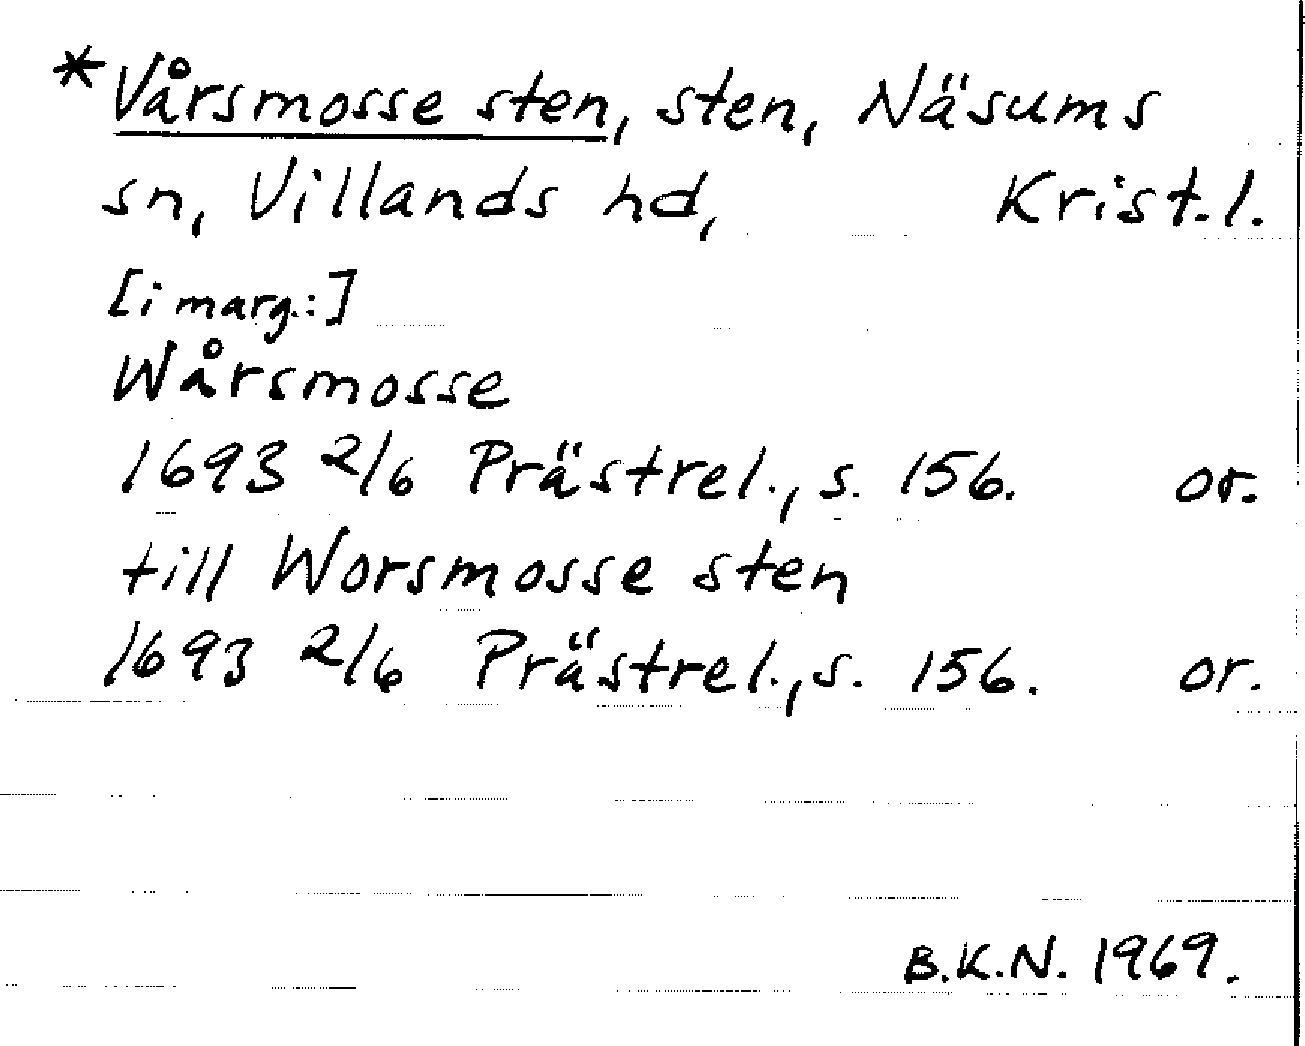 *Vårsmosse sten, sten, Näsums
sn, Villands hd, Krist.l.
[i marg.:]
Wårsmosse
1693 2/6 Prästrel., s. 156. or.
till Worsmosse sten
1693 2/6 Prästrel., s. 156. or.
B.K.N. 1969.